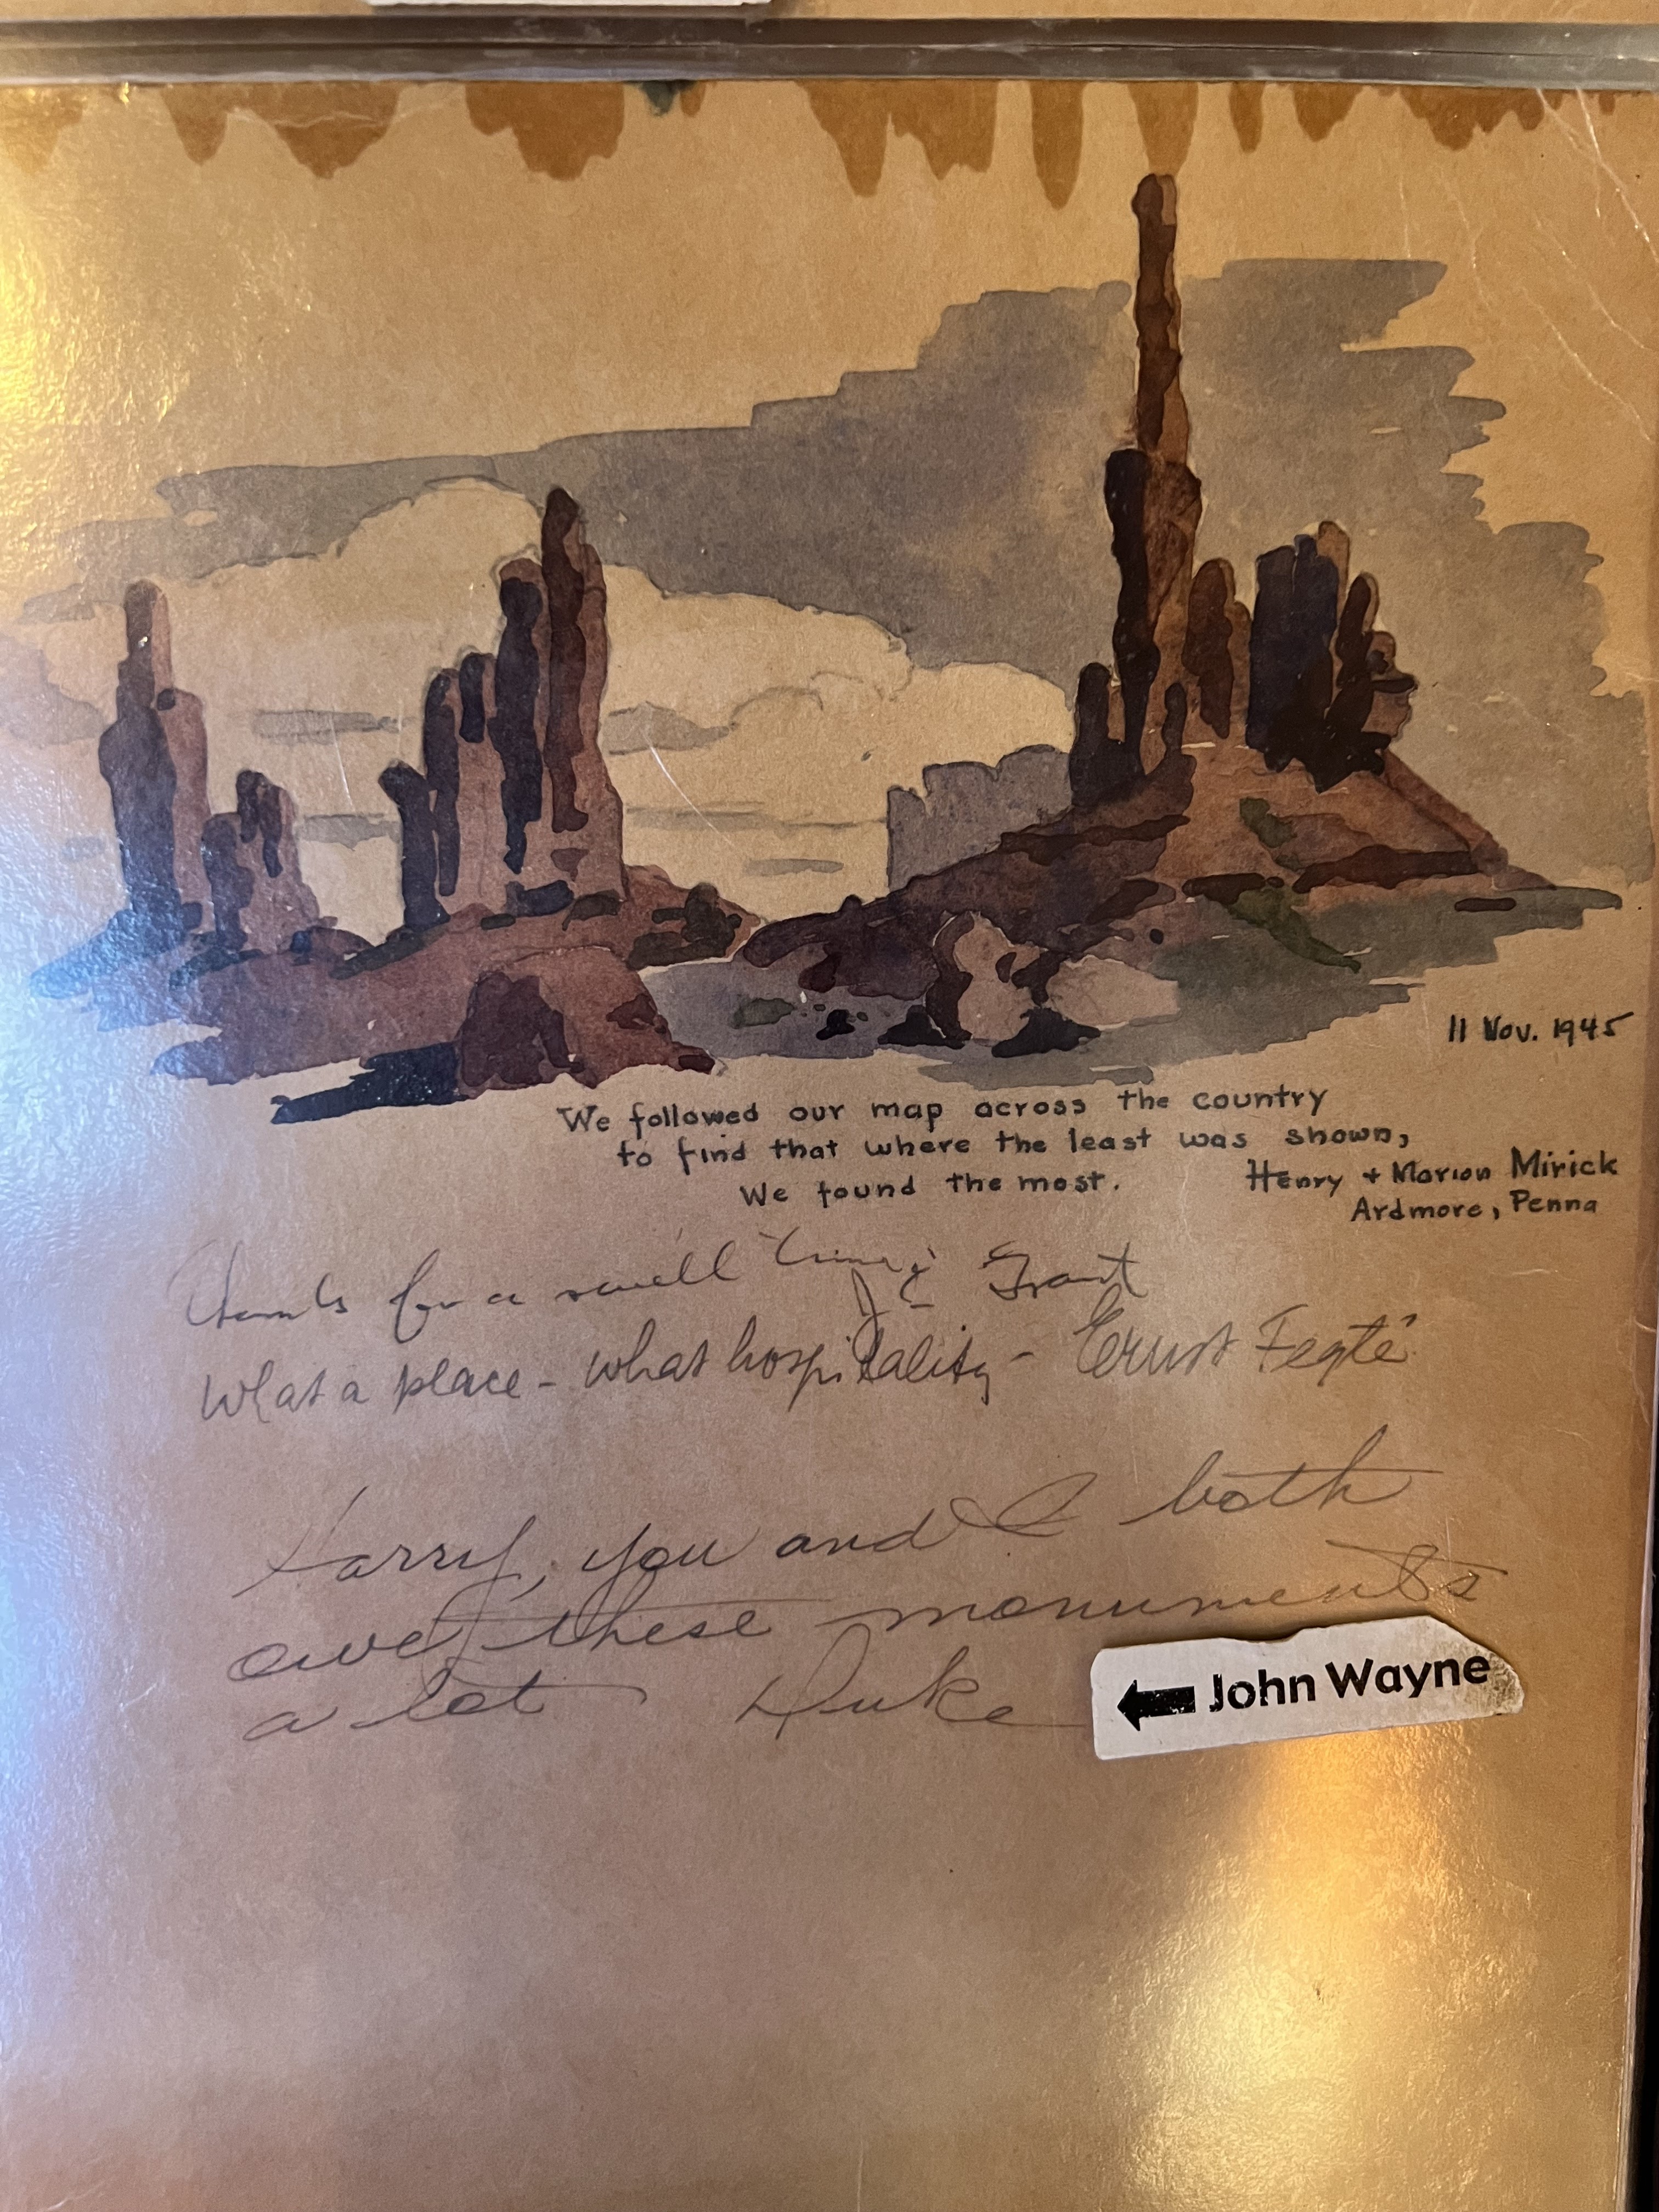 11 Nov. 1945
We followed our map across the country
to find that where the least was shown,
We found the most.
Henry + Marion Mirick
Ardmore, Penna
Thanks for a swell time; Grant
What a place - what hospitality - Ernst Fegté
Harry, you and I both
owe these monuments
a lot Duke
← John Wayne